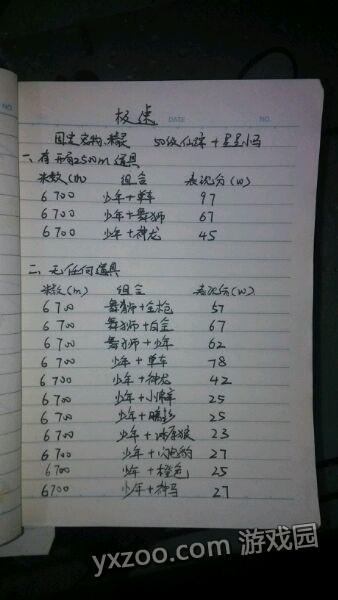 NO.
极速
DATE
NO.
固定宠物.精灵 50级仙踪+星星小马
一、有开局2500m道具
米数(m) 组合 表现分(w)
6700 少年+单车 97
6700 少年+舞狮 67
6700 少年+神龙 45
二、无任何道具
米数(m) 组合 表现分(w)
6700 舞狮+金枪 57
6700 舞狮+白金 67
6700 舞狮+少年 62
6700 少年+单车 78
6700 少年+神龙 42
6700 少年+小 25
6700 少年+ 25
6700 少年+ 23
6700 少年+闪电豹 27
6700 少年+橙色 25
6700 少年+神马 27
yxzoo.com 游戏园